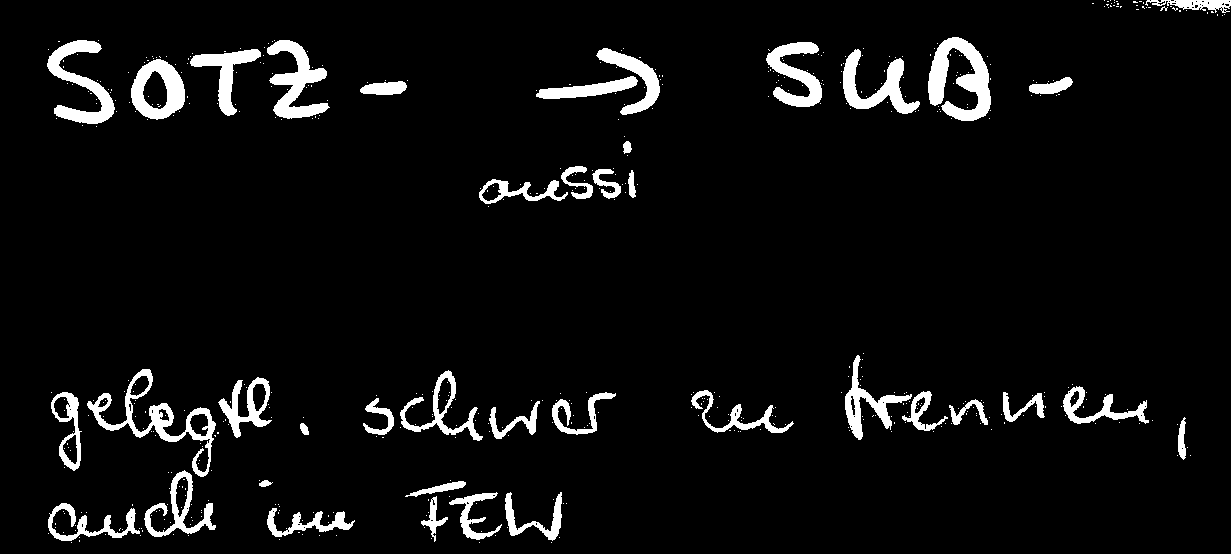 SOTZ- → SUB-
aussi
gelegtl. schwer zu trennen,
auch im FEW